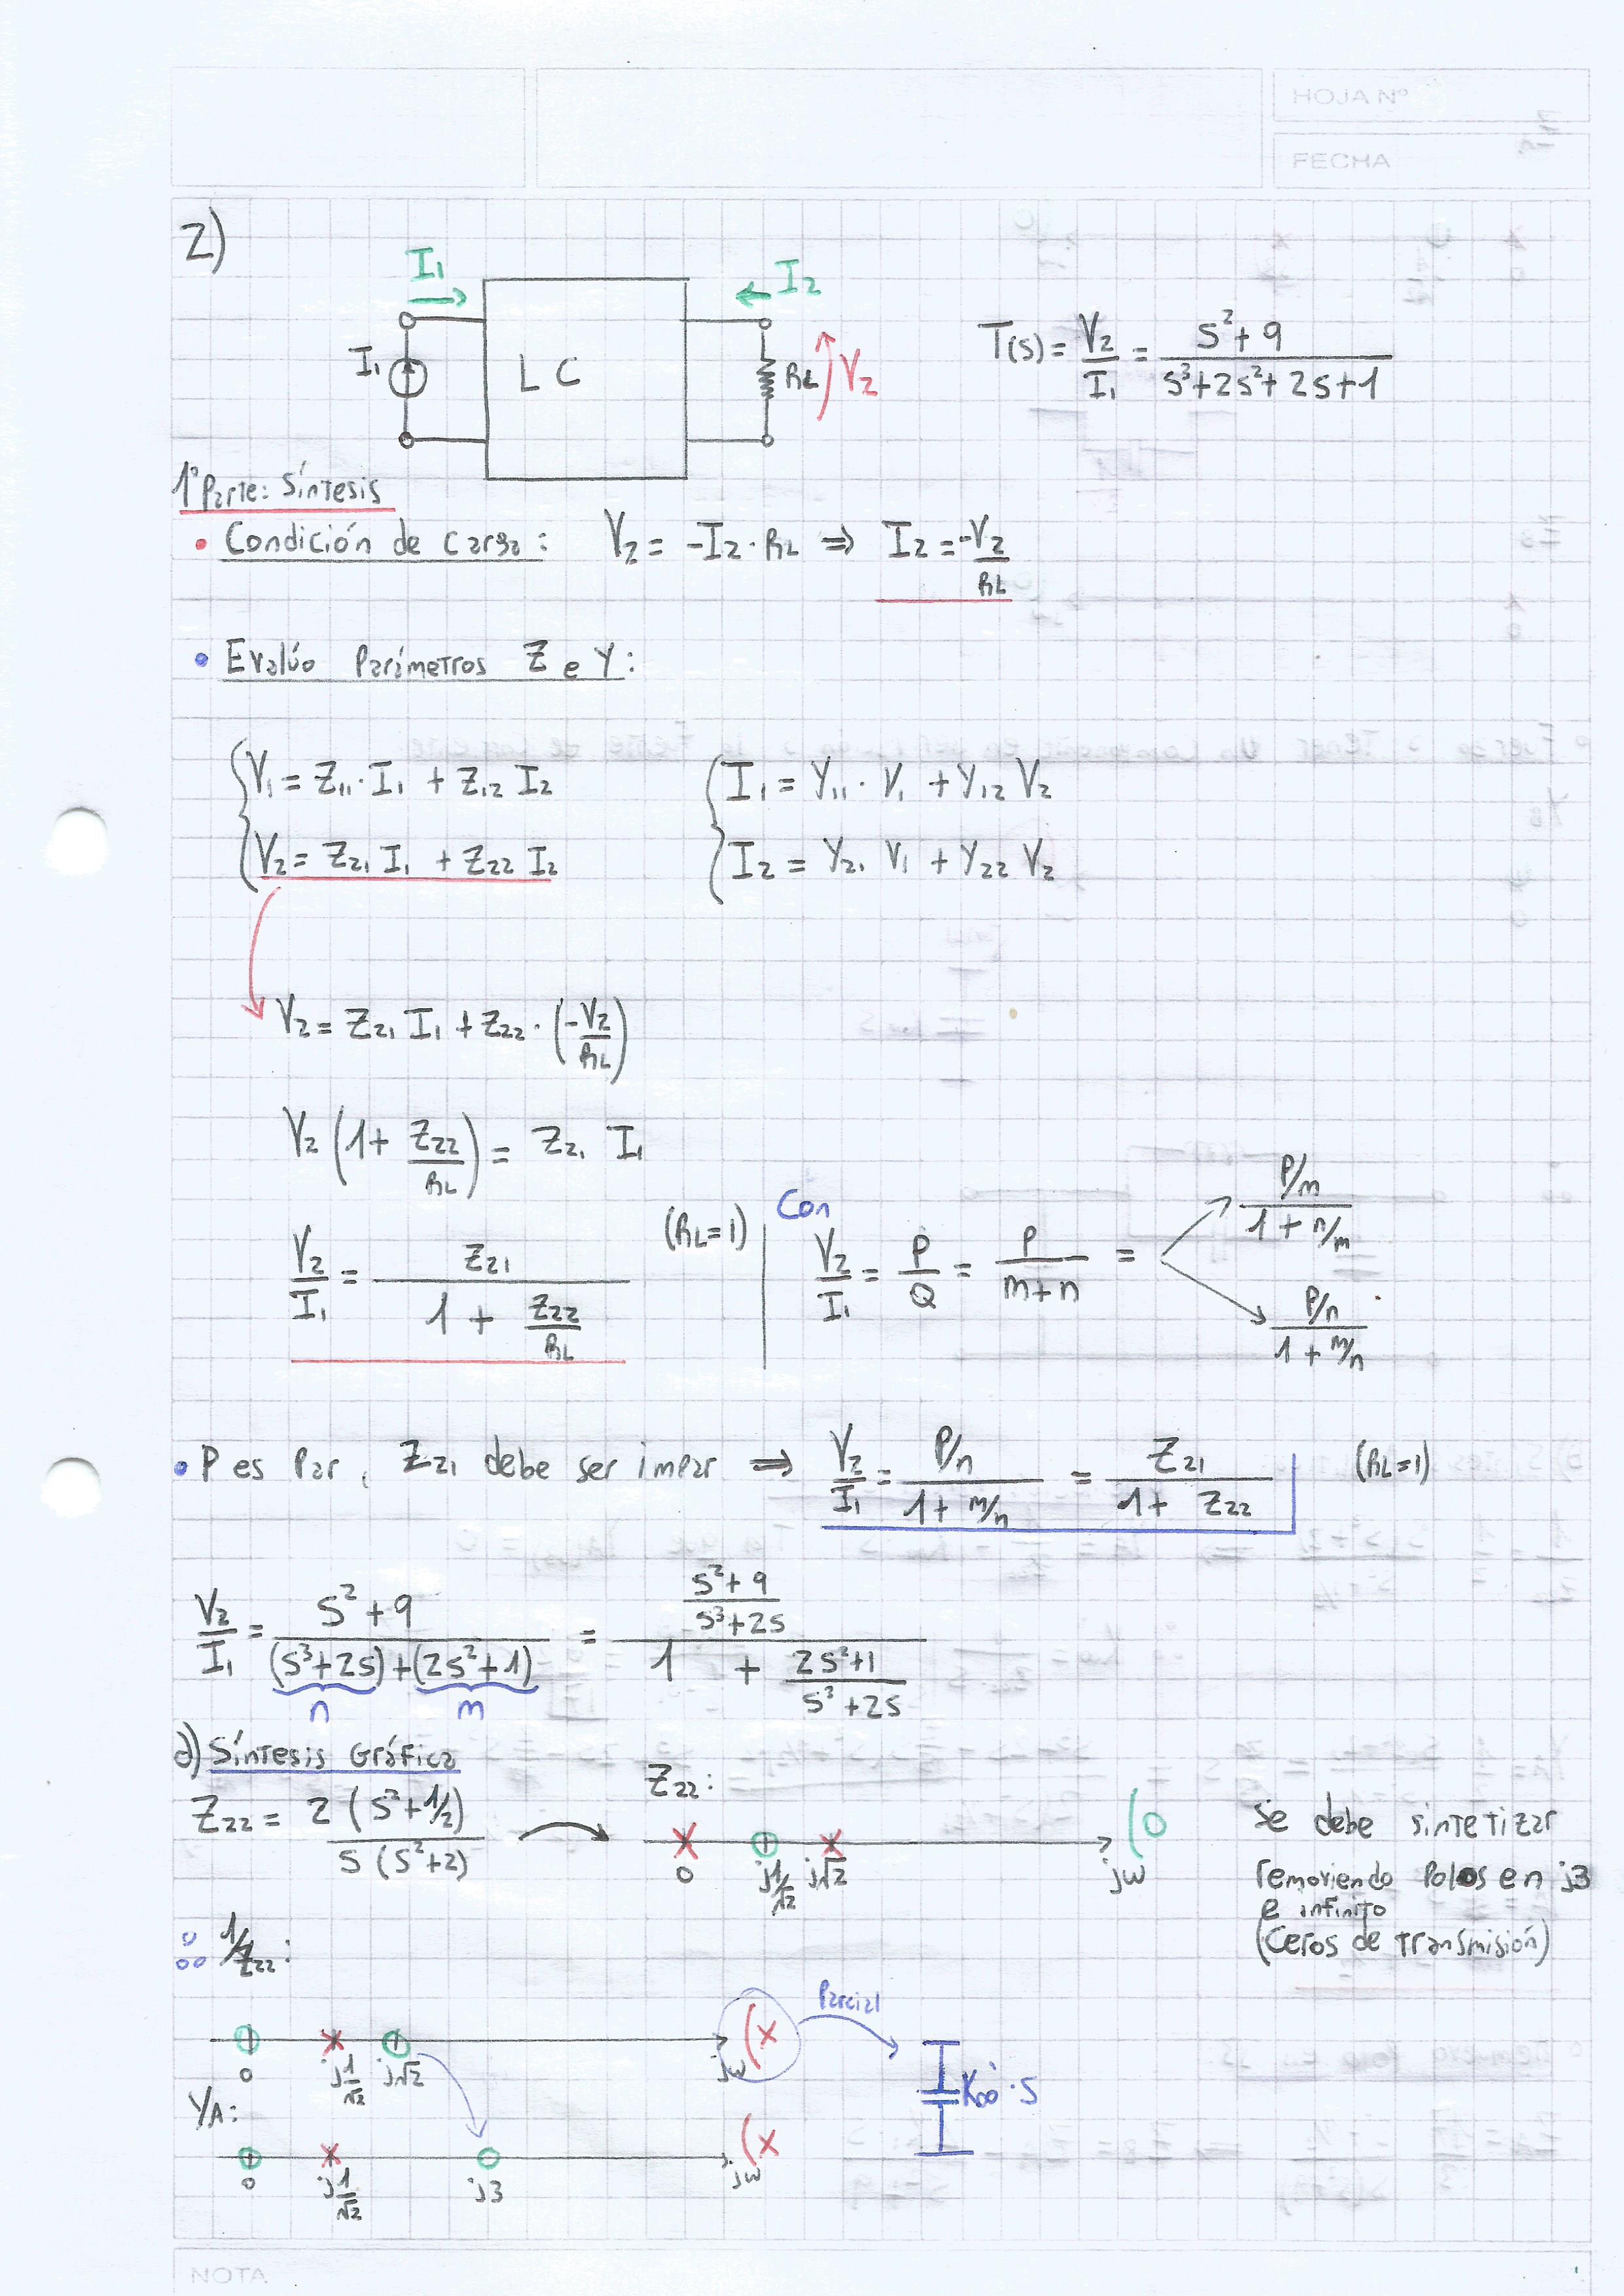 HOJA Nº
FECHA
2)
I₁
I₂
I₁
L C
RL
V₂
T(s) = V₂/I₁ = (s²+9)/(s³+2s²+2s+1)
1º Parte: Síntesis
• Condición de carga: V₂ = -I₂·RL ⇒ I₂ = -V₂/RL
• Evalúo Parámetros Z e Y:
V₁ = Z₁₁·I₁ + Z₁₂ I₂
I₁ = Y₁₁·V₁ + Y₁₂ V₂
V₂ = Z₂₁ I₁ + Z₂₂ I₂
I₂ = Y₂₁ V₁ + Y₂₂ V₂
V₂ = Z₂₁ I₁ + Z₂₂·(-V₂/RL)
V₂ (1 + Z₂₂/RL) = Z₂₁ I₁
V₂/I₁ = Z₂₁/(1 + Z₂₂/RL) (RL=1)
Con
V₂/I₁ = P/Q = P/(m+n) =
(P/m)/(1 + n/m)
(P/n)/(1 + m/n)
• P es Par, Z₂₁ debe ser impar ⇒ V₂/I₁ = (P/n)/(1 + m/n) = Z₂₁/(1 + Z₂₂) (RL=1)
V₂/I₁ = (s²+9)/((s³+2s)+(2s²+1)) = ((s²+9)/(s³+2s))/(1 + (2s²+1)/(s³+2s))
n m
d) Síntesis Gráfica
Z₂₂ = 2(s²+1/2)/(s(s²+2))
Z₂₂:
0 j1/√2 j√2 jω
se debe sintetizar
removiendo Polos en j3
e infinito
(Ceros de transmisión)
∴ 1/Z₂₂:
0 j1/√2 j√2 jω
Parcial
K∞'·s
YA:
0 j1/√2 j3 jω
NOTA